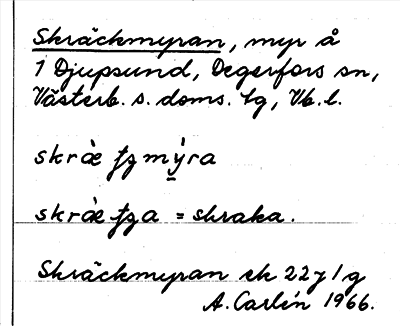 Skräckmyran, myr å
1 Djupsund, Degerfors sn,
Västerb. s. doms. tg, Vb. l.
skràe ʃʒmýra
skràe ʃʒa = skraka.
Skräckmyran ek 22 J 1 g
A. Carlén 1966.